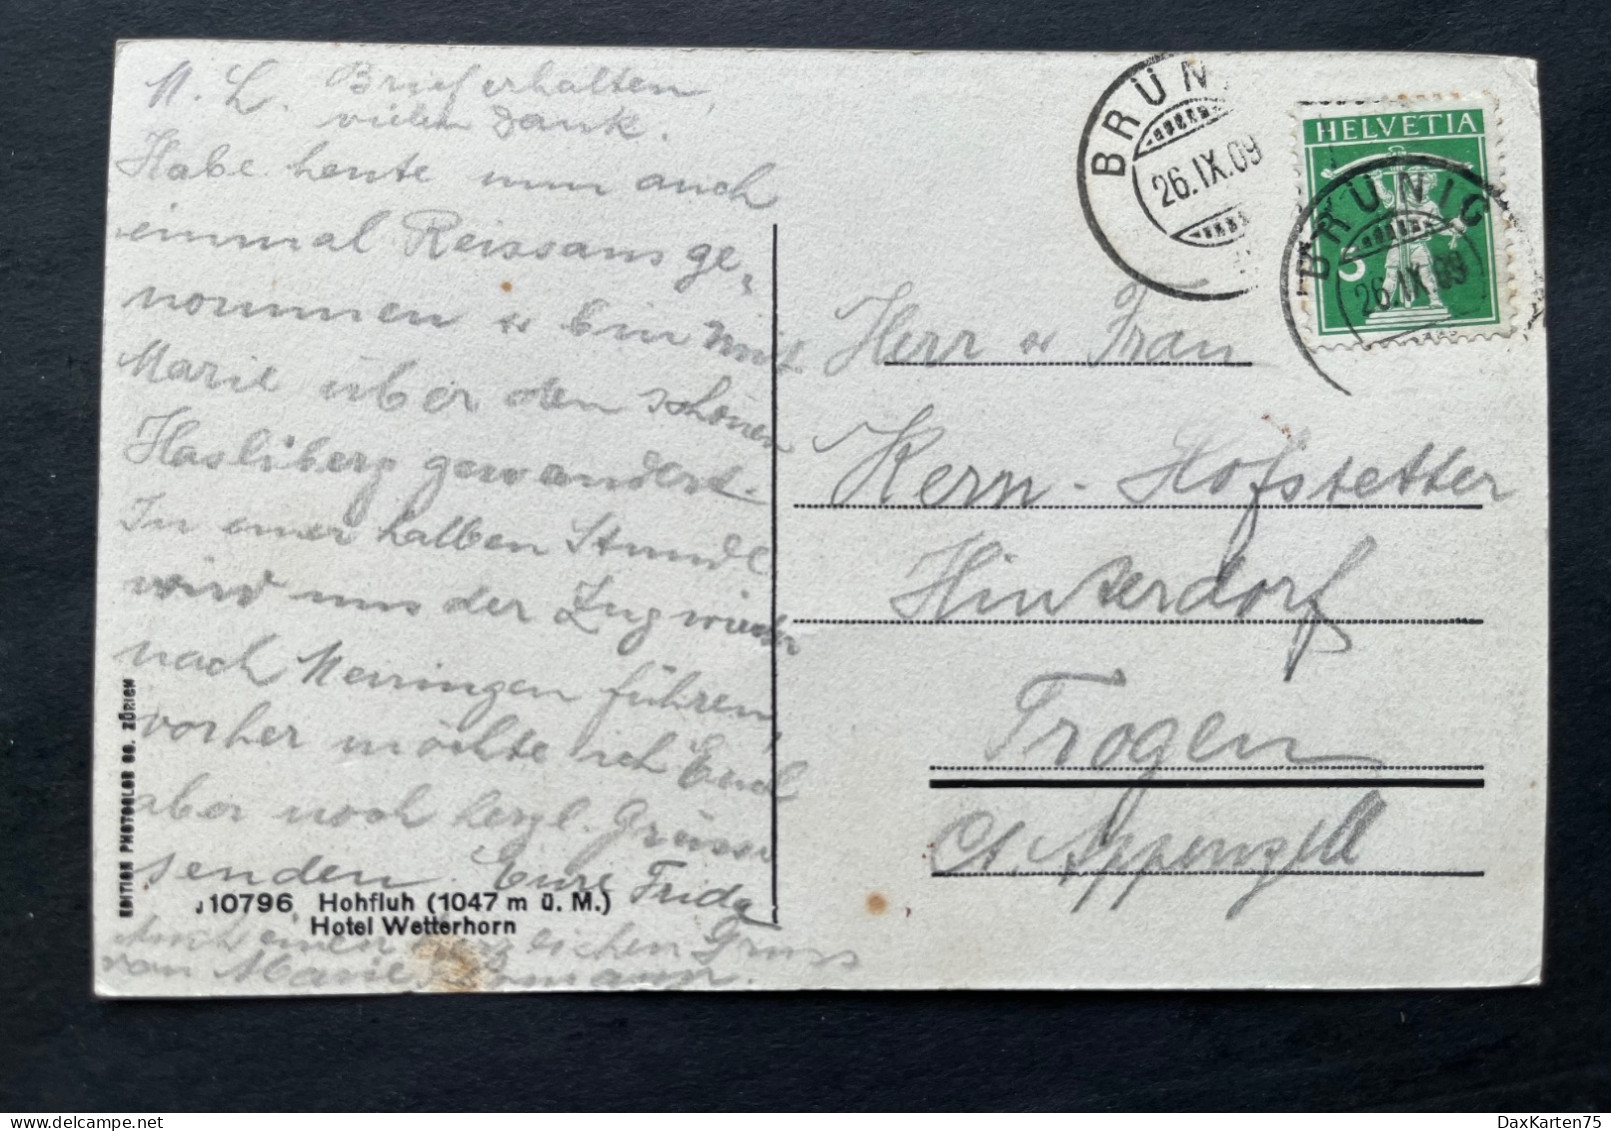 M. L. Brief erhalten,
vielen Dank.
Habe heute nun auch
einmal Reissaus ge-
nommen & bin mit
Marie über den schönen
Hasliberg gewandert.
In einer halben Stunde
wird uns der Zug wieder
nach Meiringen führen,
vorher möchte ich Euch
aber noch herzl. Grüsse
senden. Eure Frida
Auch einen herzlichen Gruss
von Marie
J10796 Hohfluh (1047 m ü. M.)
Hotel Wetterhorn
EDITION PHOTOGLOB CO. ZÜRICH
BRÜNIG
26.IX.09
HELVETIA
5
BRÜNIG
26.IX.09
Herr & Frau
Kern-Hofstetter
Hinterdorf
Trogen
Ct. Appenzell
DaxKarten75